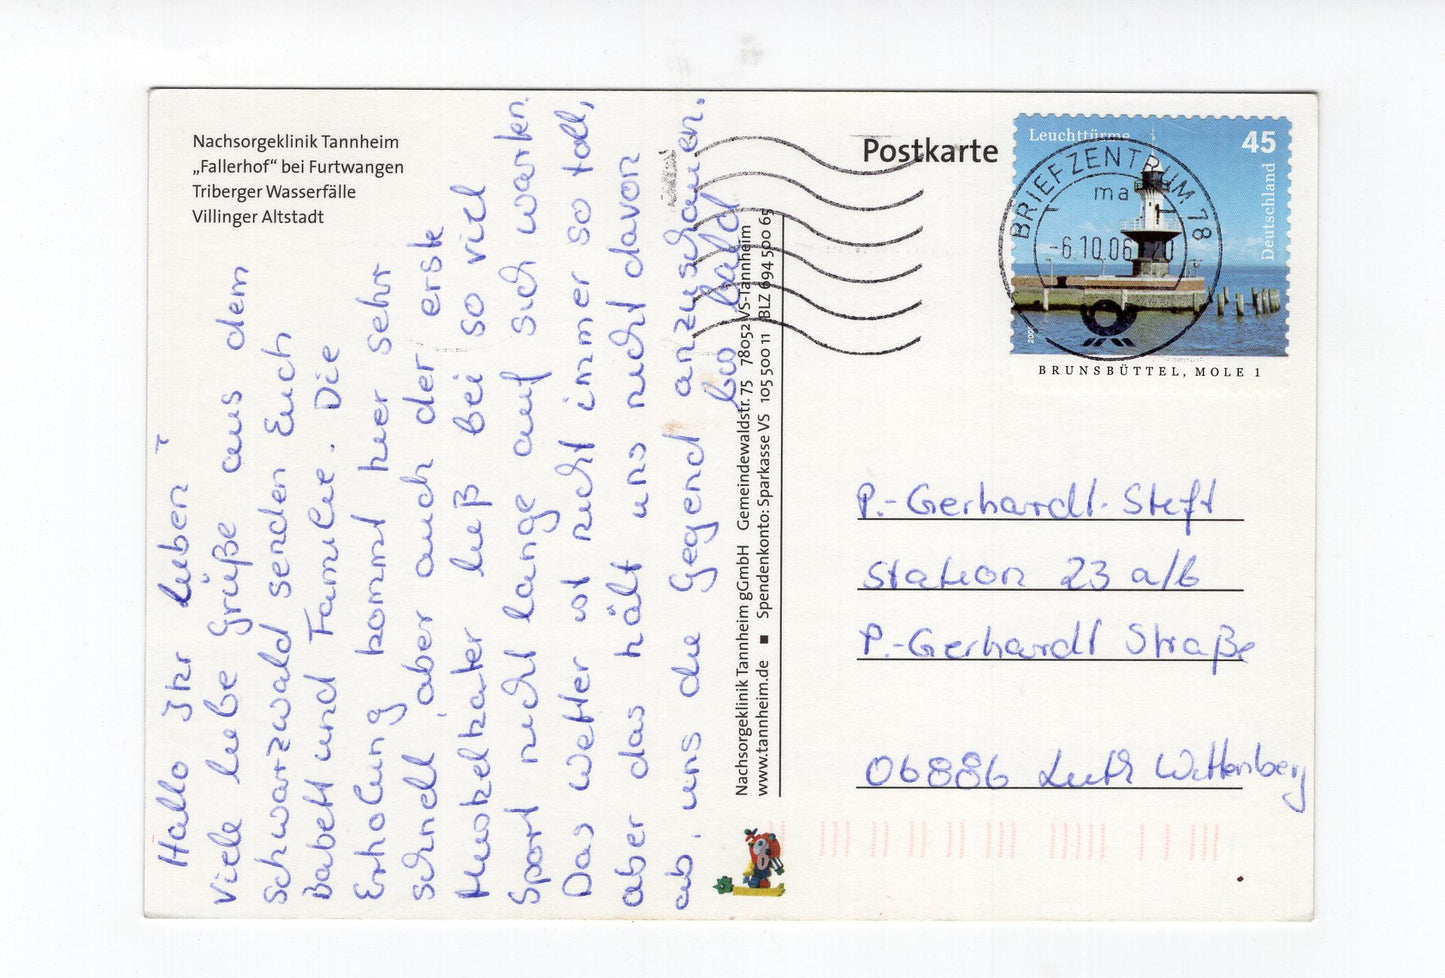 Nachsorgeklinik Tannheim
„Fallerhof“ bei Furtwangen
Triberger Wasserfälle
Villinger Altstadt
Hallo Ihr Lieben
Viele liebe Grüße aus dem
Schwarzwald senden Euch
Babett und Familie. Die
Erholung kommt hier sehr
schnell, aber auch der erste
Muskelkater ließ bei so viel
Sport nicht lange auf sich warten.
Das Wetter ist nicht immer so toll,
aber das hält uns nicht davon
ab, uns die Gegend anzuschauen.
bis bald
Nachsorgeklinik Tannheim gGmbH Gemeindewaldstr. 75 78052 VS-Tannheim
www.tannheim.de ■ Spendenkonto: Sparkasse VS 105 500 11 BLZ 694 500 65
Postkarte
Leuchttürme
45
Deutschland
BRUNSBÜTTEL, MOLE 1
BRIEFZENTRUM 78
ma
-6.10.06
20
P.-Gerhardt-Stift
Station 23 a/b
P.-Gerhardt Straße
06886 Luth Wittenberg